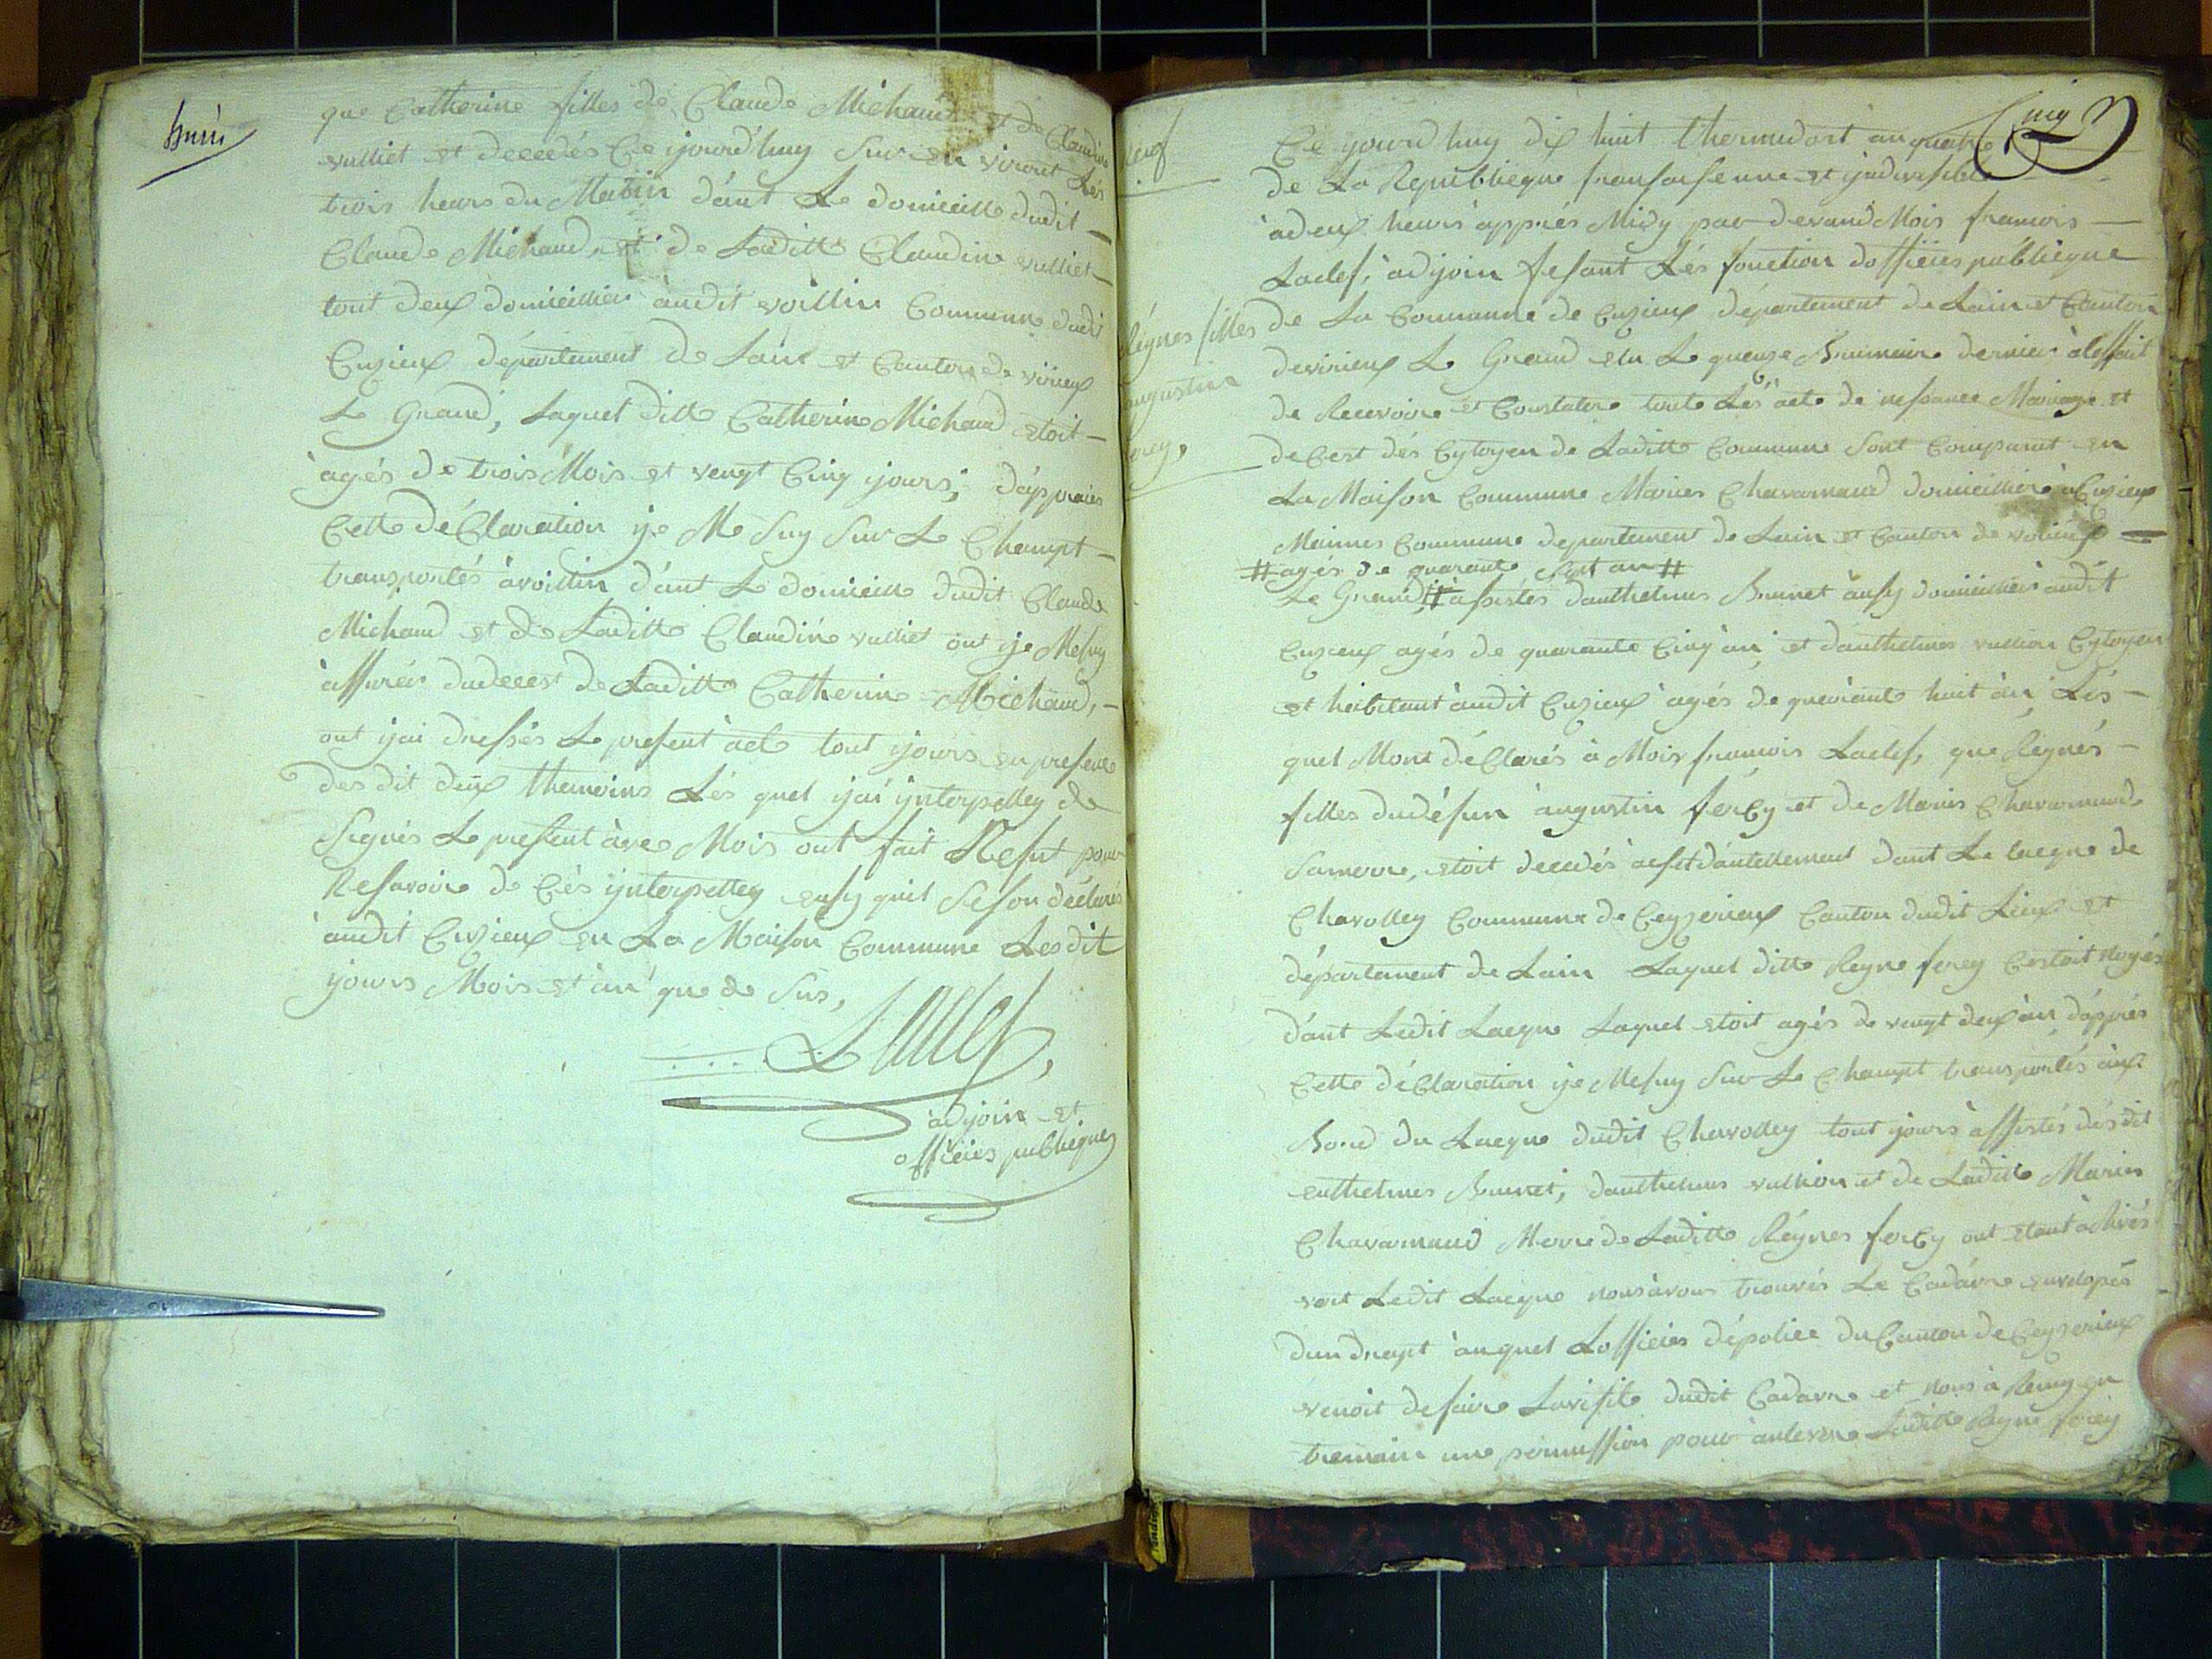 huit
que Catherine filles de Claude Michaud et de Claudine
vulliet et decedés Ce ijourd'huy Sur en viront Lés
trois heurs du Matin d'ant Le domicille dudit
Claude Michaud, et de Laditte Claudine vulliet
tout deux domicillier audit voillin Commune dudit
Cuzieux département de Lain et Canton de virieux
Le Grand, Laquel ditte Catherine Michaud etoit
agés de trois Mois et vengt Cinq ijours; d'apprais
Cette déClaration ije Me Suy Sur Le Champt
transportés a voillin d'ant Le domicille dudit Claude
Michaud et de Laditte Claudine vulliet ont ije Me suy
assurés du decest de Laditte Catherine Michaud,
ont ijai dressés Le present acte tout ijours en presence
des dit deux themoins Lés quel ijai ynterpelley de
Segnés Le present avec Mois ont fait Refut pour
Ne savoire de Cés ynterpelley ensy quil Se son déclarés
audit Cuzieux en La Maison Commune Lesdit
ijours Mois et an que de Sus,
Laclef,
adjoin et
officies publiques
Cinq
neuf
Régnes filles
augustin
ferey,
Ce ijourd huy dix huit thermidort an quatre
de La Republicque fransaisenne et ijndivisible
a deux heurs apprés Midy par devand Mois francois
Laclef, adijoin fesant Lés fonction d officies publicque
de La Commune de Cuzieux département de Lain et Canton
de virieux Le Grand elu Le quenze Brumaire dernier a leffait
de Recevoire et Constatere toute Lés acte de nessance Mariage et
decest dés Cytoyen de Laditte Commune Sont Comparut en
La Maison Commune Maries Chavarnaud domicilliere a Cuzieux
Maimes Commune departement de Lain et Canton de virieux
# agés de quarante Sept an #
Le Grand # assistés d'anthelmes Brunet aussy domicilliés audit
Cuzieux agés de quarante Cinq an et d'anthelmes vullion Cytoyen
et habitant audit Cuzieux agés de quarante huit an Lés
quel Mont déClarés a Mois francois Laclef, que Régnés
filles du défun augustin ferey et de Maries Chavarnaud
Samerre, etoit decedés acsidantellement dant Le lacque de
Chavolley Commune de Ceyzerieux Canton dudit Lieux et
département de Lain Laquel ditte Reyne ferey Cestoit Noyés
d'ant Ledit Lacque Laquel etoit agés de vengt deux an d'apprés
Cette déClaration ije Me suy Sur Le Champt transportés aux
Bord du Lacque dudit Chavolley tout ijours assistés dés dit
enthelmes Brunet, d'anthelmes vullion et de Laditte Maries
Chavarnaud Merre de Laditte Régnes ferey ont etant arivés
vert Ledit Lacque nous avons trouvés Le Cadavre envelopés
dun drapt auquel L officies dépolice du Canton de Ceyzerieux
venoit defaire La visite dudit Cadavre et nous a Remy en
tremain une permission pour anlevere Laditte Reyne ferey